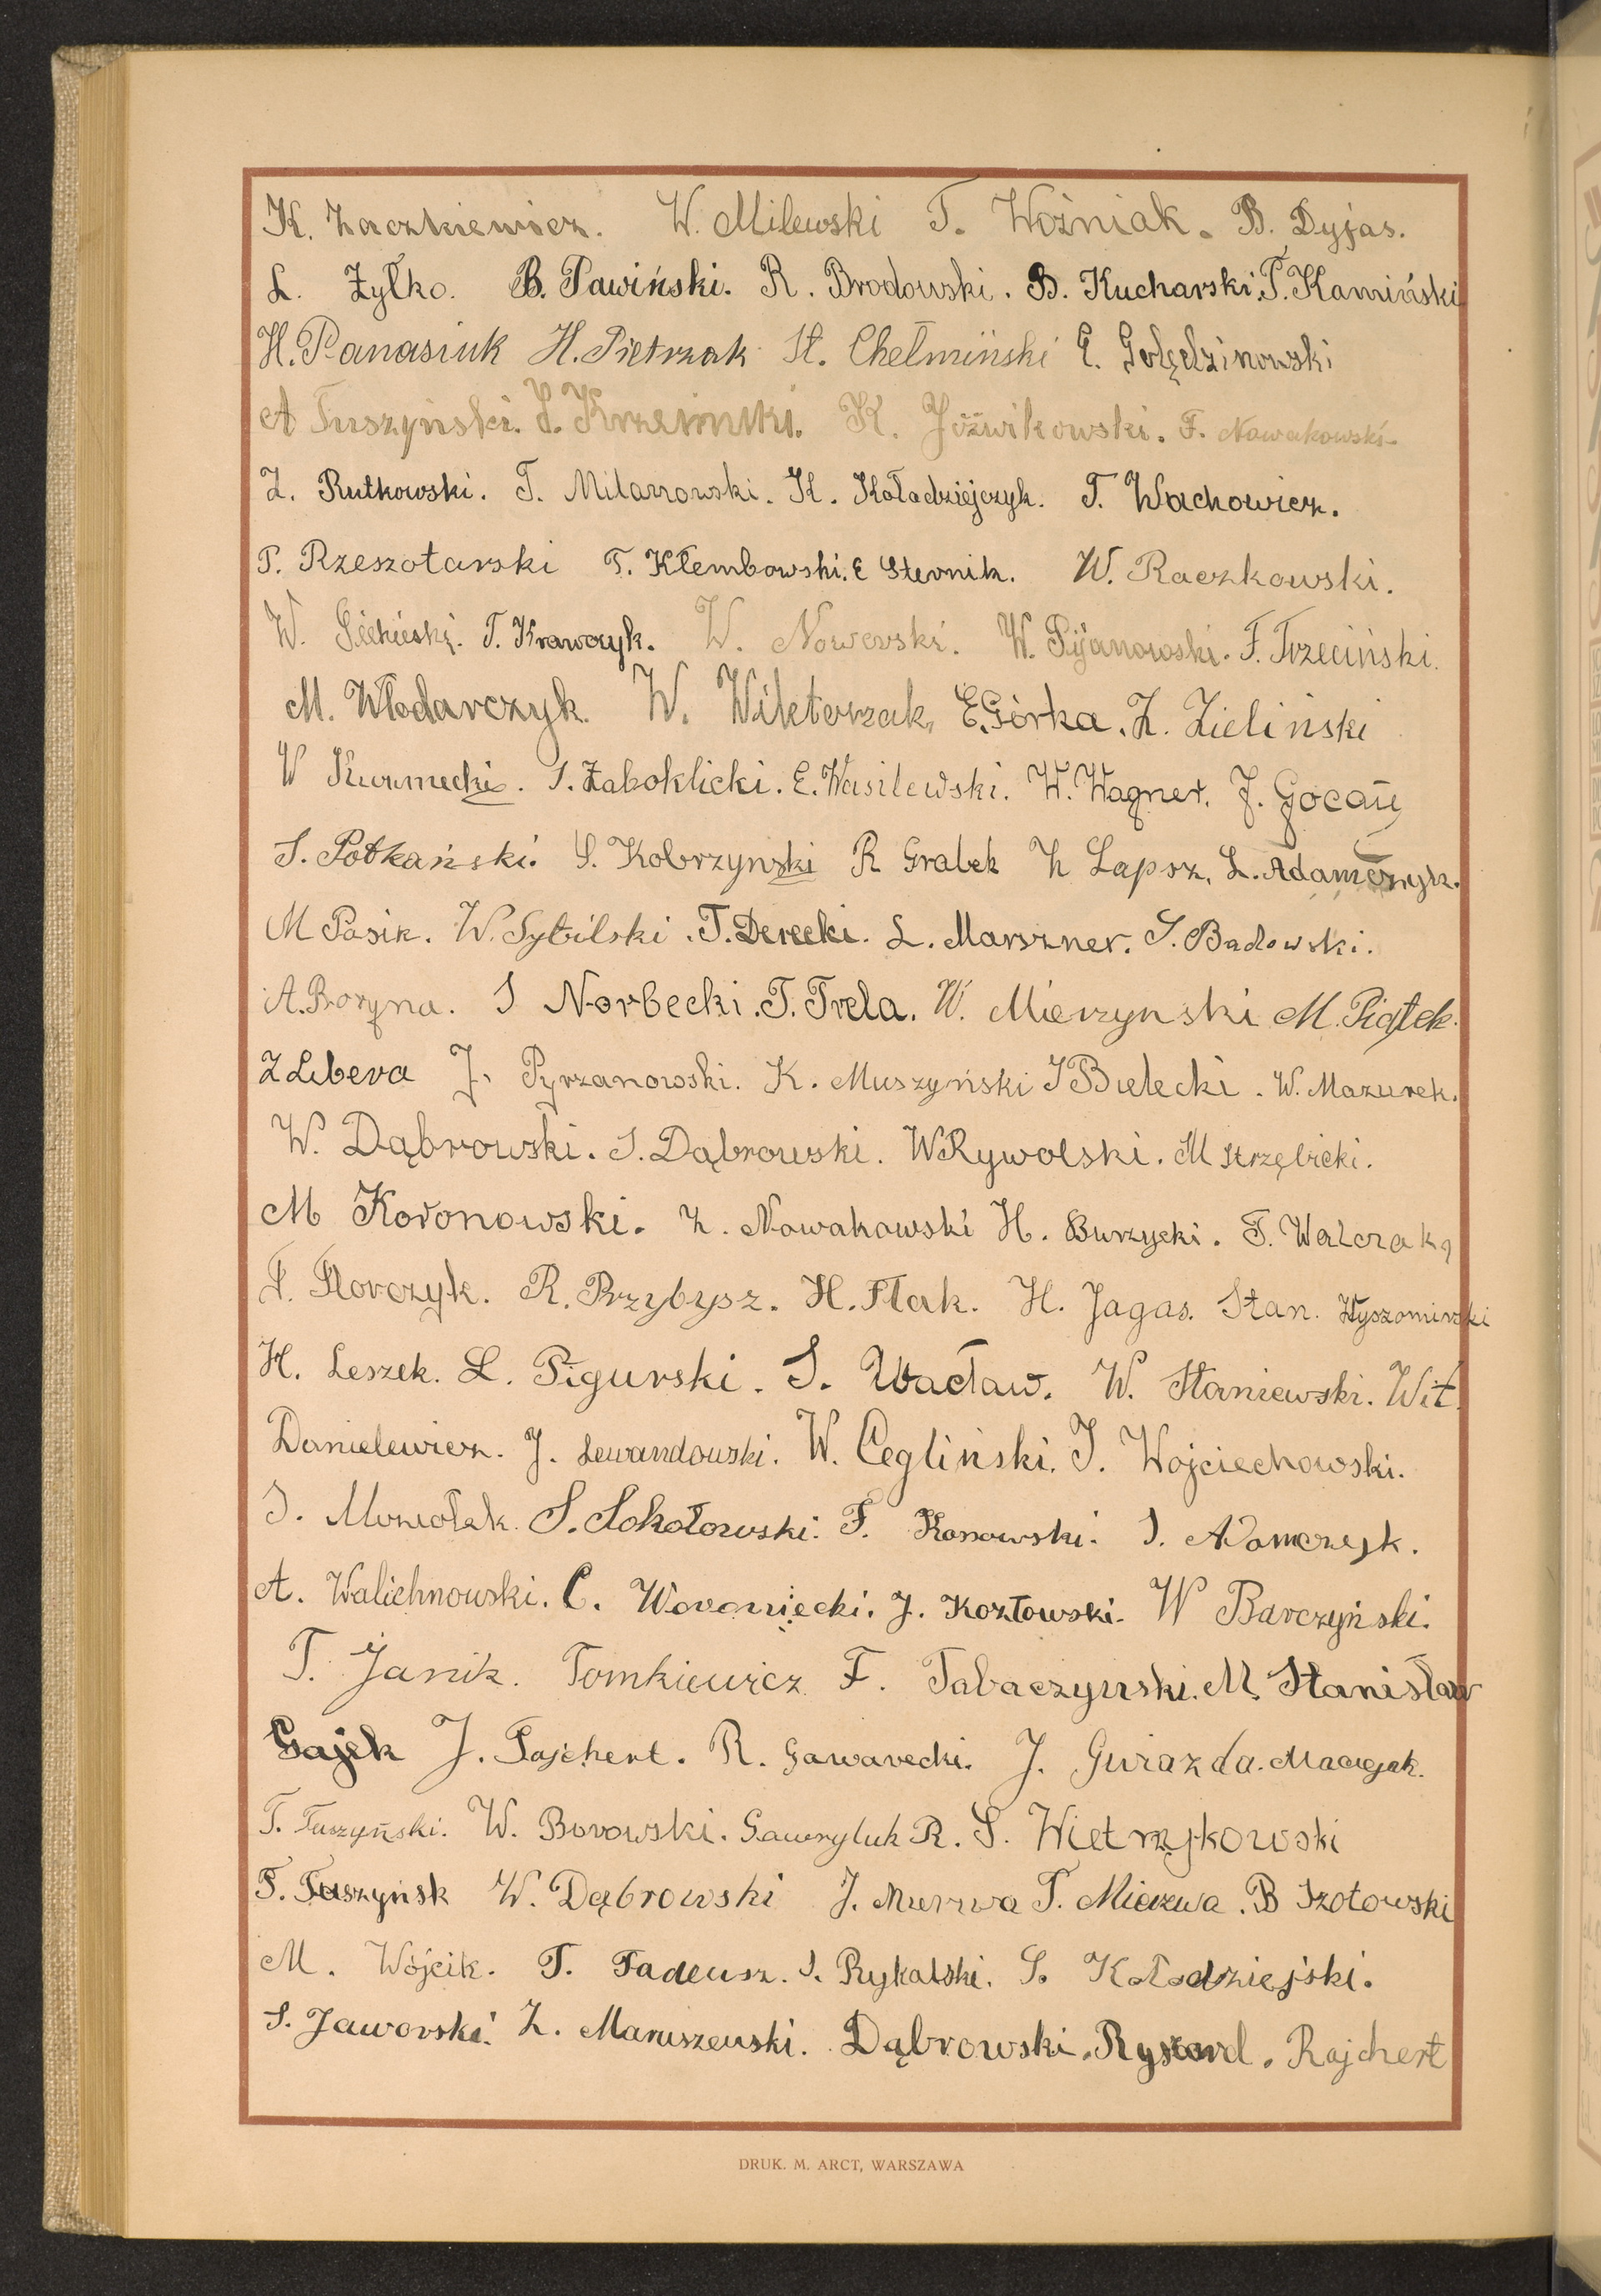 K. Zaczkiewicz. W. Milewski T. Woźniak. B. Dyjas.
L. Żyłko. B. Pawiński. R. Brodowski. B. Kucharski. T. Kamiński
H. Panasiuk H. Pietrzak St. Chełmiński E. Golędzinowski
A Tuszyński. K. Jóźwikowski. F. Nowakowski
Z. Rutkowski. T. Milanowski. K. Koładziejczyk. T. Wachowicz.
P. Rzeszotarski T. Kłembowski. E Sternik. W. Raczkowski.
W. T. Krawczyk. W. Nowerski. W. Pijanowski. F. Trzeciński.
M. Włodarczyk. W. Wiktorzak, E. Górka. Z. Zieliński
W S. Żaboklicki. E. Wasilewski. W. Wagner. J. Gocał
S. Potkański. S. Kobrzynski R Grabek Z Lapsz. L. Adamczyk.
M Pasik. W. Sybilski. T. Derecki. L. Marszner. S. Badowski.
A. Boryna. S Norbecki. T. Trela. W. Mierzynski M. Piątek.
Z Libera J. Pyrzanowski. K. Muszyński J Bielecki. W. Mazurek.
W. Dąbrowski. S. Dąbrowski. W Rywolski. M Strzębicki.
M Koronowski. Z. Nowakowski H. Burzycki. T. Walczak,
F. Florczyk. R. Przybysz. H. Flak. H. Jagas. Stan. Wyszomirski
H. Leszek. L. Figurski. S. Wacław. W. Staniewski. Wit.
Danielewicz. J. Lewandowski. W. Cegliński. J. Wojciechowski.
J. S. Sokołowski. F. Konowski. J. Adamczyk.
A. Walichnowski. C. Woroniecki. J. Kozłowski. W Barczyński.
T. Janik. Tomkiewicz F. Tabaczynski. M. Stanisław
Gajek J. Pajchert. R. Gawarecki. J. Gwiazda. Maciejak.
T. Tuszyński. W. Borowski. Gawryluk R. S. Wietrzykowski
T. Tuszyńsk W. Dąbrowski J. Mierzwa T. Mierzwa. B Szotowski
M. Wójcik. T. Tadeusz. S. Rykalski. S. Kołodziejski.
S. Jaworski. Z. Maruszewski. Dąbrowski. Ryszard. Rajchert
DRUK. M. ARCT, WARSZAWA